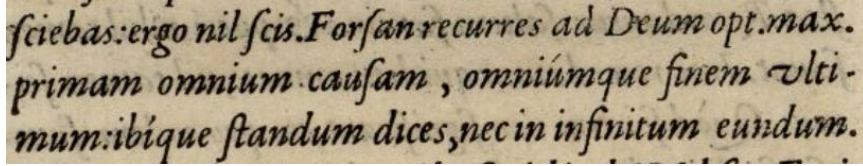 ſciebas: ergo nil ſcis. Forſan recurres ad Deum opt. max.
primam omnium cauſam, omniúmque finem vlti-
mum: ibíque ſtandum dices, nec in infinitum eundum.